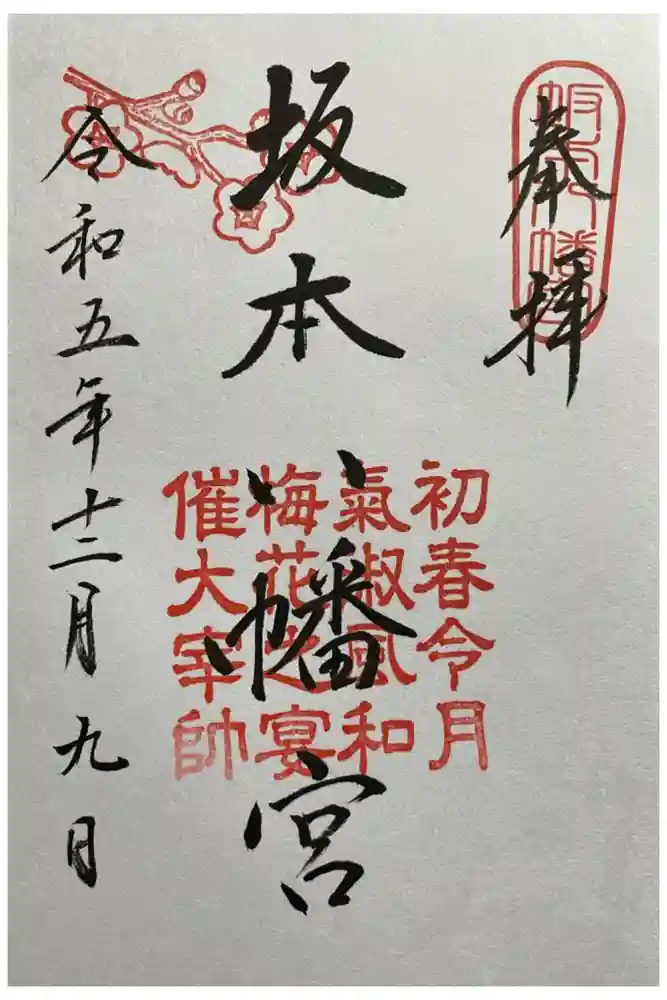 奉拝
坂本八幡宮
初春令月
氣淑風和
梅花之宴
催大宰帥
令和五年十二月九日